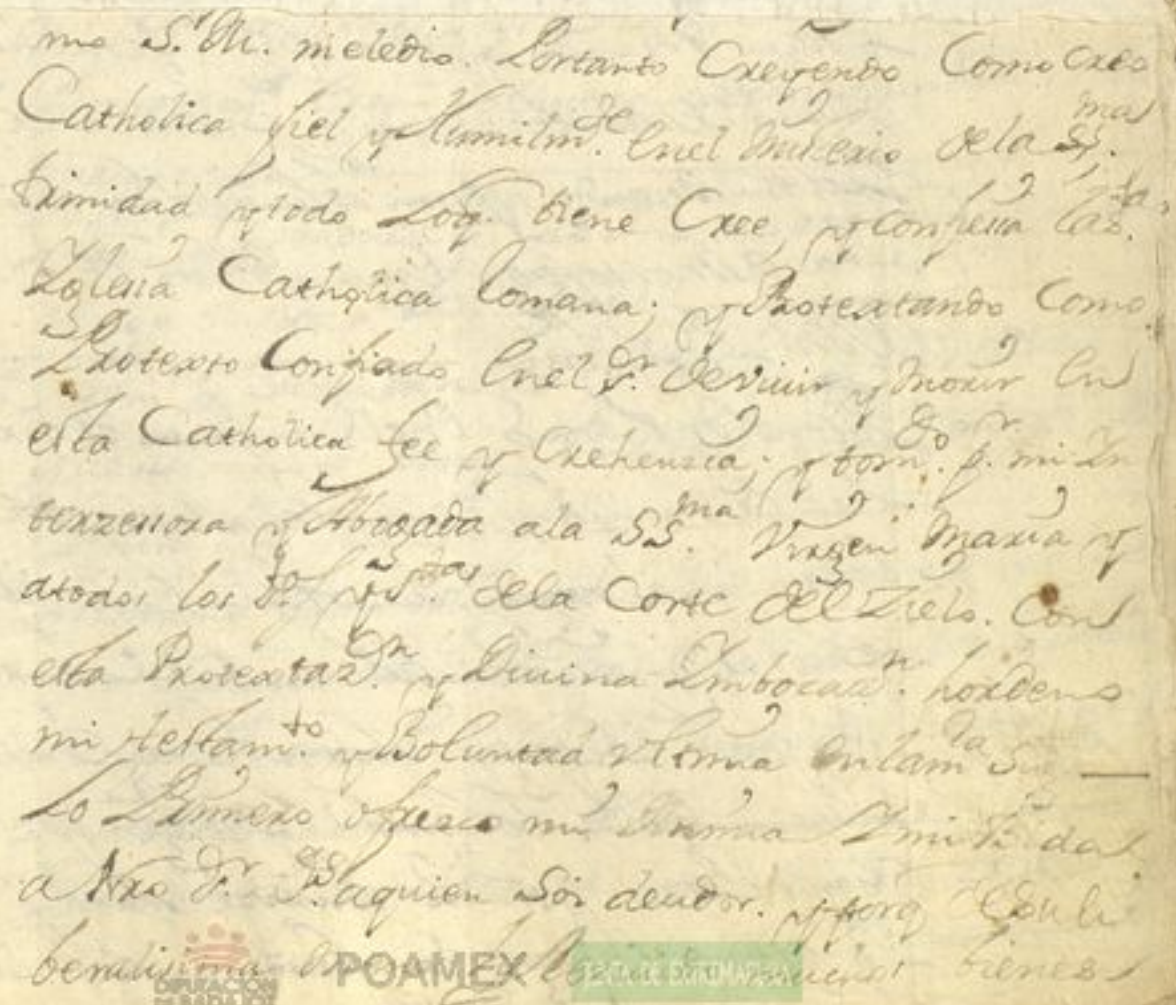 mo S. M. meledio. Portanto Creyendo Como creo
Catholica fiel y Humilmte. Enel Misterio dela SSma.
trinidad ytodo Loq. tiene Cree, y confiessa la sta.
Yglesia Catholica Romana; y Protextando Como
Protexto Confiado Enel Sr. devivir y morir En
esta Catholica fee y Crehensia; y tomdo. pr. mi In
terzessora y Abogada ala SSma. Virgen Maria y
atodos los Sos. y Stas. dela Corte del Zielo. Con
esta Protextazn. y Divina Imbocazn. hordeno
mi testamto. y Boluntad vltima enlama. sigte.
Lo Primero ofresco mi Anima
a Nro Sr. Ds. aquien Soi deudor. y porq. desu li
beralisima bienes
DIPUTACIÓN
DE BADAJOZ
POAMEX